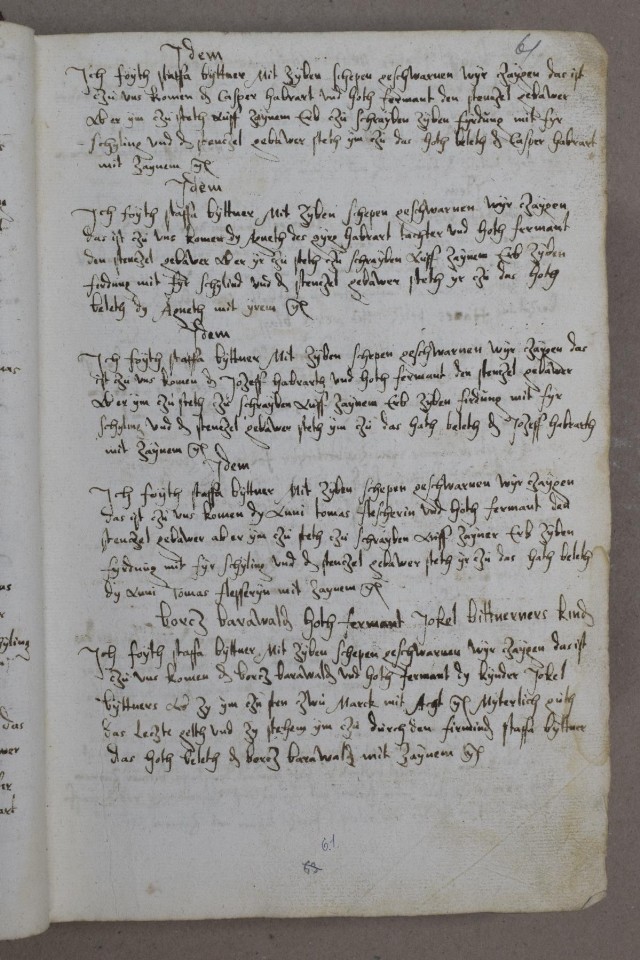 61
Idem
Ich foyth staffa byttner Mit Zyben schepen geschwarnen wyr Zaygen das ist
czu vns komen d Casper Habrart vnd hoth fermant den stenczel gebawer
Ab er ym czu steth Auff Zaynem Erb czu schrayben Zyben fyrdung mit fyr
schyling vnd d stenczel gebawer steth ym czu das hoth beleth d Casper habrart
mit Zaynem
Idem
Ich foyth staffa byttner Mit Zyben schepen geschwarnen wyr Zaygen
das ist czu vns komen dy Agneth des habrart tachter vnd hoth fermant
den stenczel gebawer Ab er yr czu steth czu schrayben Auff Zaynem Erb Zyben
firdung mit fyr schyling vnd d stenczel gebawer steth yr czu das hoth
beleth dy Agneth mit yrem
Idem
Ich foyth staffa byttner Mit Zyben schepen geschwarnen wyr Zaygen das
ist czu vns komen d Jozeff habrarth vnd hoth fermant den stenczel gebawer
Ab er ym czu steth czu schrayben Auff Zaynem Erb Zyben firdung mit fyr
schyling vnd d stenczel gebawer steth ym czu das hath beleth d Jozeff habrarth
mit Zaynem
Idem
Ich foyth staffa byttner Mit Zyben schepen geschwarnen wyr Zaygen
das ist czu vns komen dy tomas flescherin vnd hoth fermant den
stenczel gebawer ab er ym czu steth czu schrayben Auff Zayner Erb Zyben
fyrdung mit fyr schyling vnd d stenczel gebawer steth yr czu das hath beleth
dy Tomas flesseryn mit Zaynem
borcz barawald hoth fermant Jokel bittnerners kind
Ich foyth staffa byttner Mit Zyben schepen geschwarnen wyr Zaygen das ist
czu vns komen d borcz barawald vnd hoth fermant dy kynder Jokel
byttners Ab Zy ym czu sten zwu Marck mit Acht Myterlich guth
das leczte gelth vnd Zy stehem ym czu durch den firmind staffa byttner
das hoth beleth d borcz barawald mit Zaynem
61